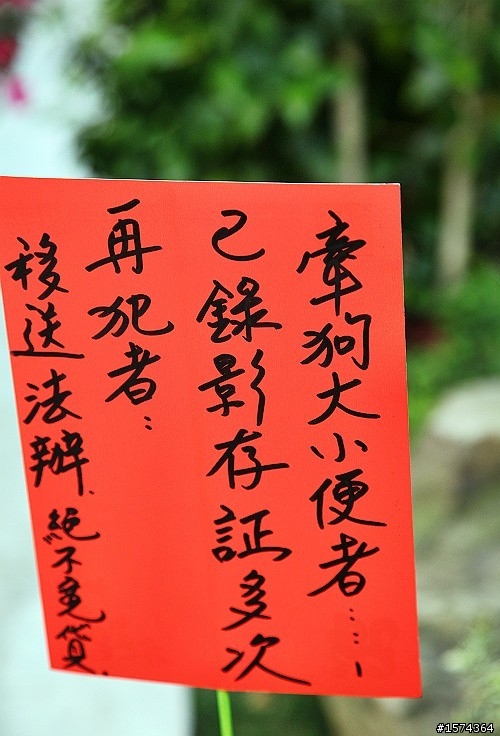 牽狗大小便者……!
已錄影存証多次
再犯者:
移送法辦.絕不寬貸.
#1574364